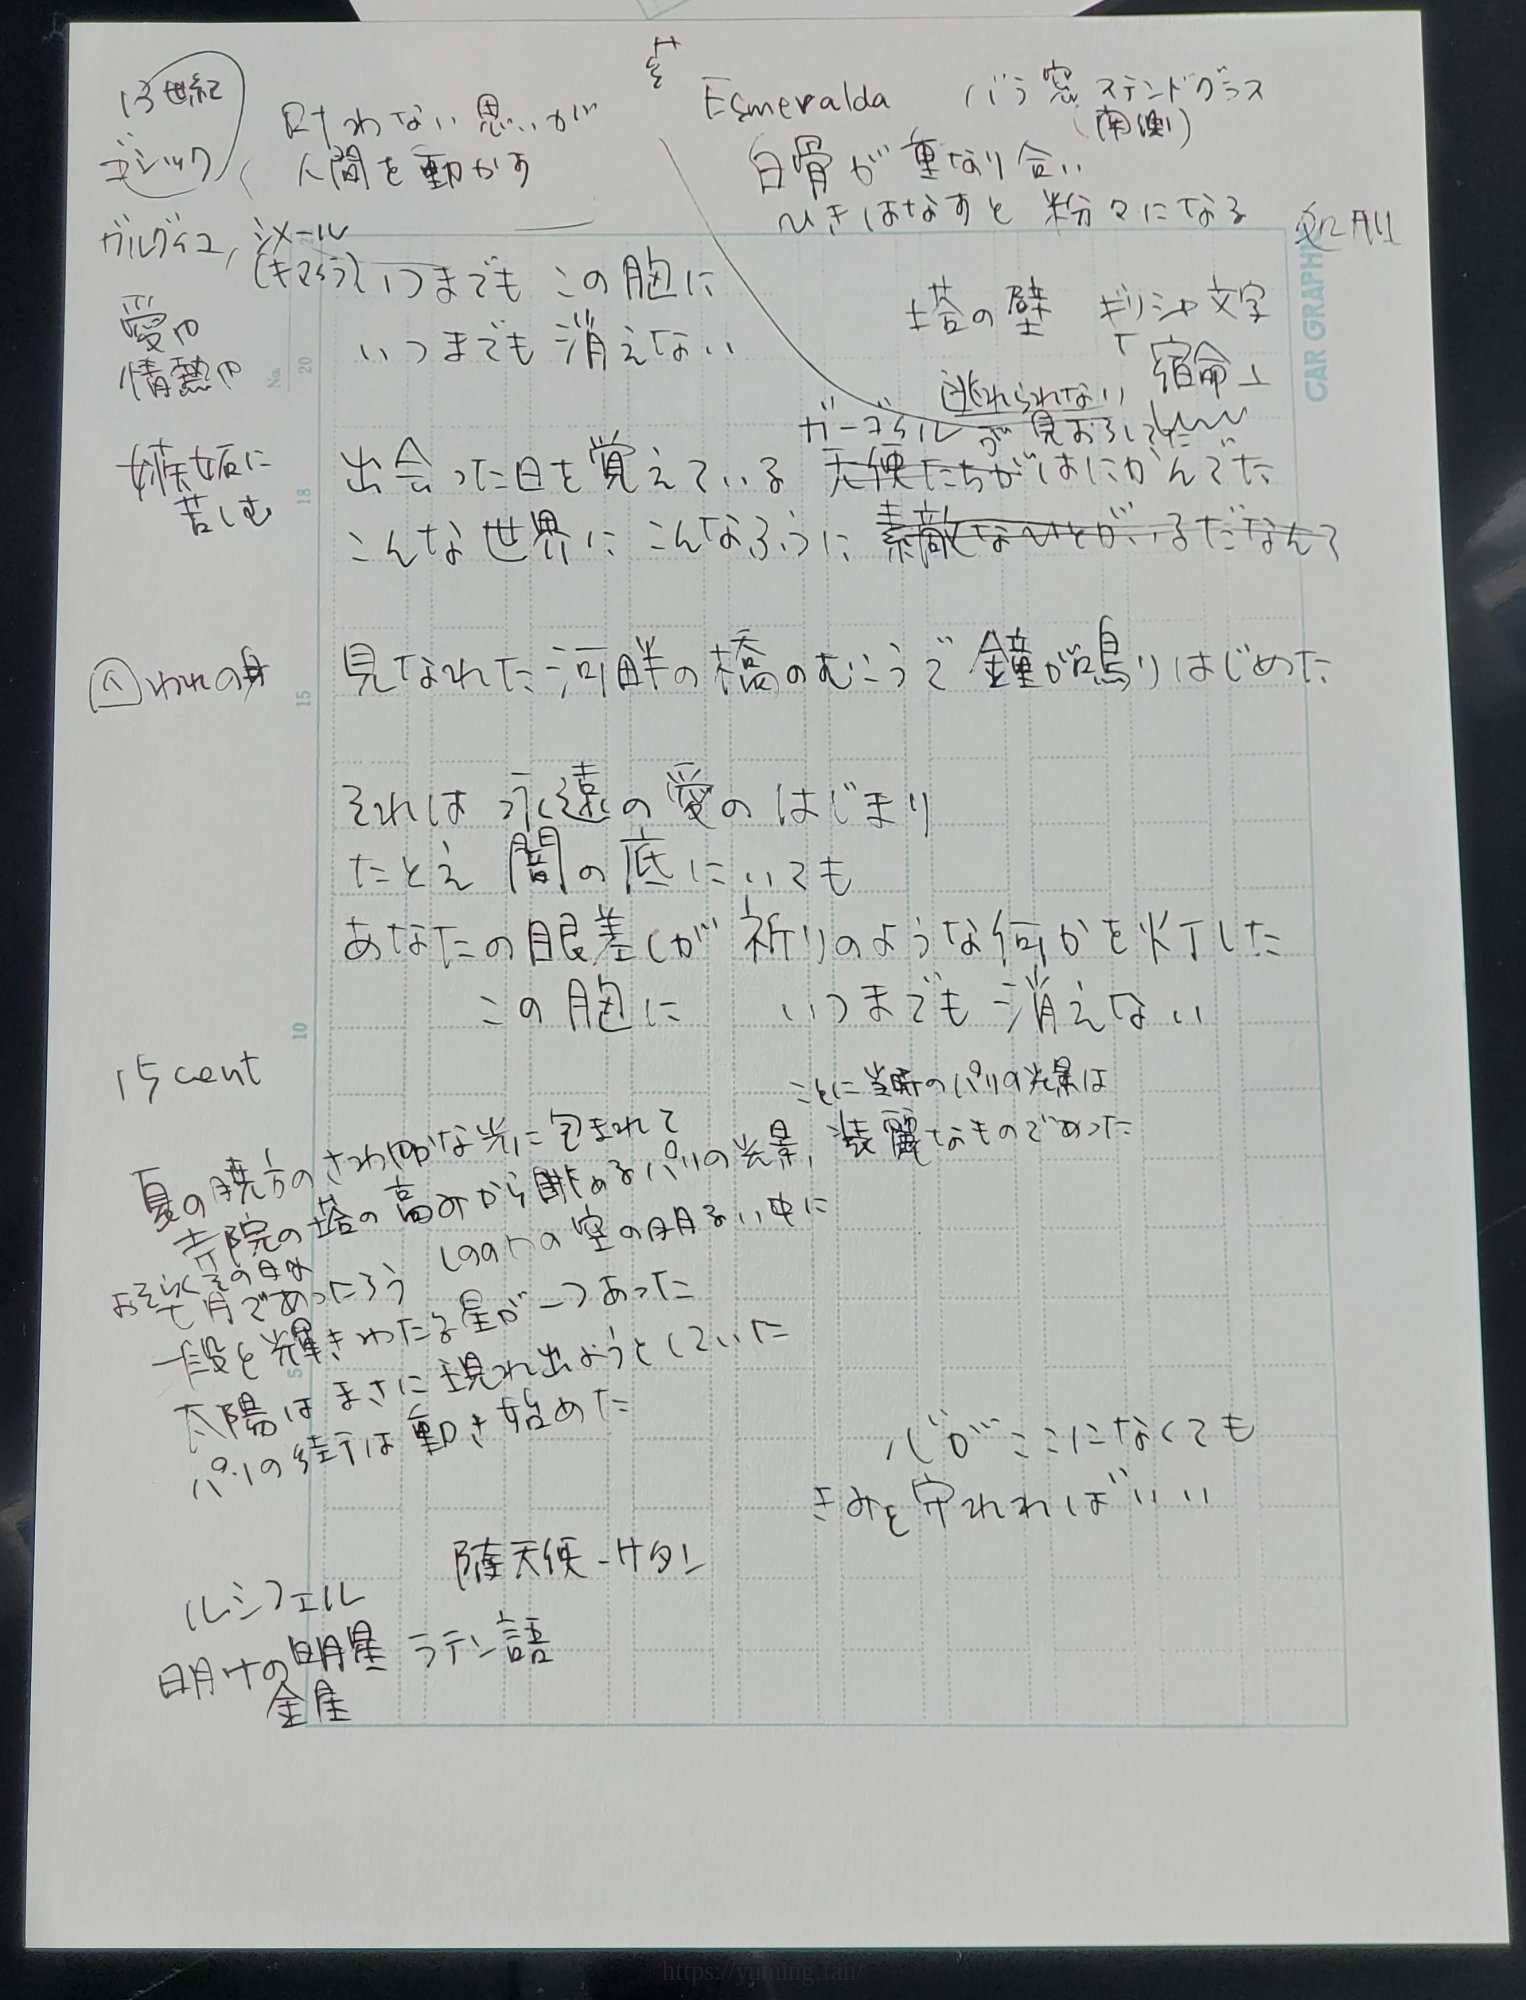 13世紀
ゴシック
叶わない思いが
人間を動かす
Esmeralda
バラ窓 ステンドグラス
(南側)
白骨が重なり合い
ひきはなすと 粉々になる
処刑
ガルグイユ, シメール
(キマイラ)
いつまでも この胸に
いつまでも 消えない
愛や
情熱や
嫉妬に
苦しむ
塔の壁 ギリシャ文字
「宿命」
逃れられない
ガーゴイルが見おろしてた
出会った日を覚えている 天使たちがはにかんでた
こんな世界に こんなふうに 素敵なひとがいるだなんて
囚われの身
見なれた河畔の橋のむこうで 鐘が鳴りはじめた
それは 永遠の愛の はじまり
たとえ 闇の底にいても
あなたの眼差しが 祈りのような何かを灯した
この胸に いつまでも 消えない
15 cent
ことに当時のパリの光景は
装麗なものであった
夏の暁方のさわやかな光に包まれて
寺院の塔の高みから眺めるパリの光景,
おそらくその日は
七月であったろう
しののめの空の明るい中に
一段と光輝きわたる星が一つあった
太陽はまさに現れ出ようとしていた
パリの街は動き始めた
心がここになくても
きみを守れればいい
堕天使-サタン
ルシフェル
明けの明星 ラテン語
金星
CAR GRAPHI
No.
21
20
18
15
10
5
https://yuming.fan/